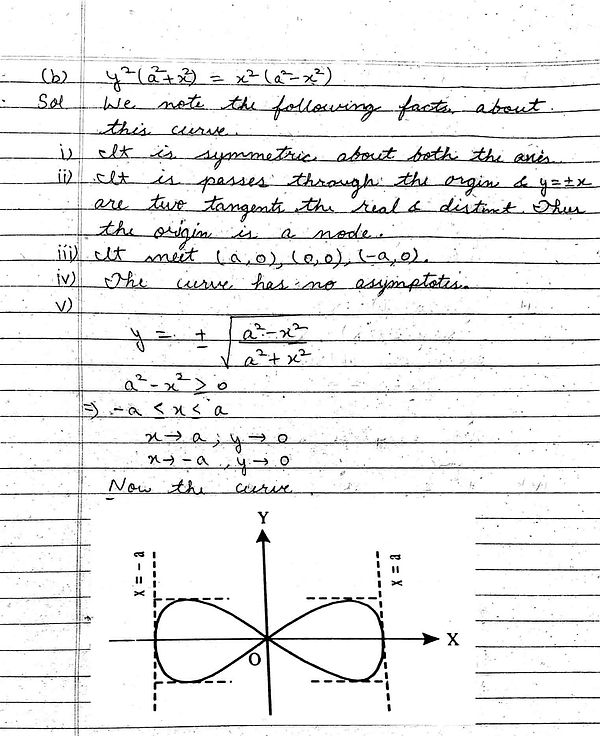 (b) y²(a²+x²) = x²(a²-x²)
Sol We note the following facts about
this curve.
i) It is symmetric about both the axes.
ii) It is passes through the orgin & y=±x
are two tangents the real & distinct. Thus
the origin is a node.
iii) It meet (a,0), (0,0), (-a,0).
iv) The curve has no asymptotes.
v)
y = ± √((a²-x²)/(a²+x²))
a²-x² ≥ 0
⇒ -a ≤ x ≤ a
x → a ; y → 0
x → -a , y → 0
Now the curve.
Y
x = -a
x = a
X
O